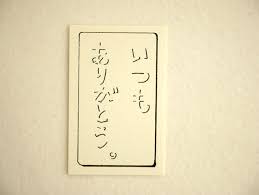 いつも
ありがとう。